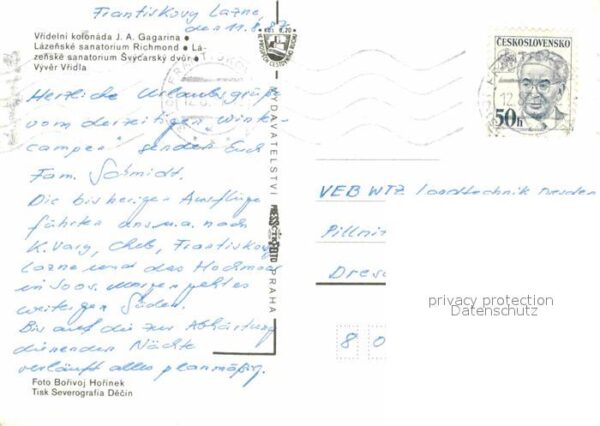 Frantiskovy Lazne
den 11.8.87
Vřídelní kolonáda J. A. Gagarina •
Lázeňské sanatorium Richmond • Lá-
zeňské sanatorium Švýcarský dvůr •
Vývěr Vřídla
Herzliche Urlaubsgrüße
vom derzeitigen
camper senden Euch
Fam. Schmidt.
Die bisherigen Ausflüge
führten uns u.a. nach
K. Vary, Cheb, Frantiskovy
Lazne und das Hochmoor
in Soos. Morgen geht es
weiter gen Süden.
Bis auf die zur Abhärtung
dienenden Nächte
verläuft alles planmäßig.
Foto Bořivoj Hořínek
Tisk Severografia Děčín
VYDAVATELSTVÍ PRESSFOTO PRAHA
ČESKOSLOVENSKO
50h
VEB WTZ Landtechnik Dresden
Pillni
Dres
8 0
privacy protection
Datenschutz